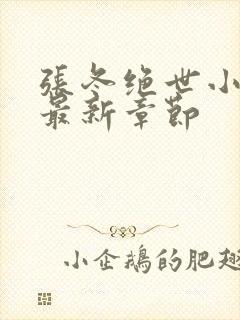 張冬绝世小
最新章節
小企鵝的肥翅